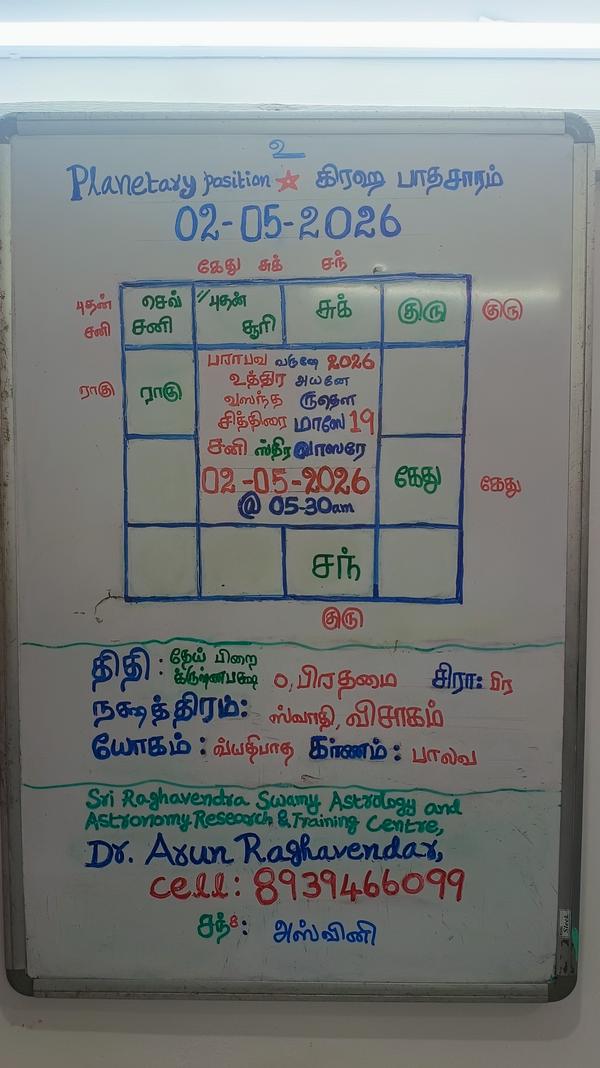 உ
Planetary position ☆ கிரஹ பாதசாரம்
02-05-2026
கேது சுக் சந்
புதன் சனி
செவ் சனி
"புதன் சூரி
சுக்
குரு
குரு
ராகு
ராகு
பராபவ வருஷே 2026
உத்திர அயனே
வஸந்த ருதௌ
சித்திரை மாஸே 19
சனி ஸ்திர வாஸரே
02-05-2026
@ 05-30am
கேது
கேது
சந்
குரு
திதி : தேய் பிறை
க்ருஷ்ணபக்ஷ
0, பிரதமை சிரா: பிர
நக்ஷத்திரம்: ஸ்வாதி, விசாகம்
யோகம் : வ்யதிபாத கரணம் : பாலவ
Sri Raghavendra Swamy Astrology and
Astronomy Research & Training Centre,
Dr. Arun Raghavendar,
cell: 8939466099
சந்8: அஸ்வினி